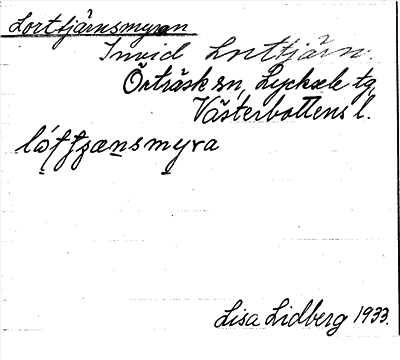 Lorttjärnsmyran
Invid Lorttjärn.
Örträsk sn, Lycksele tg,
Västerbottens l.
Lisa Lidberg 1933.